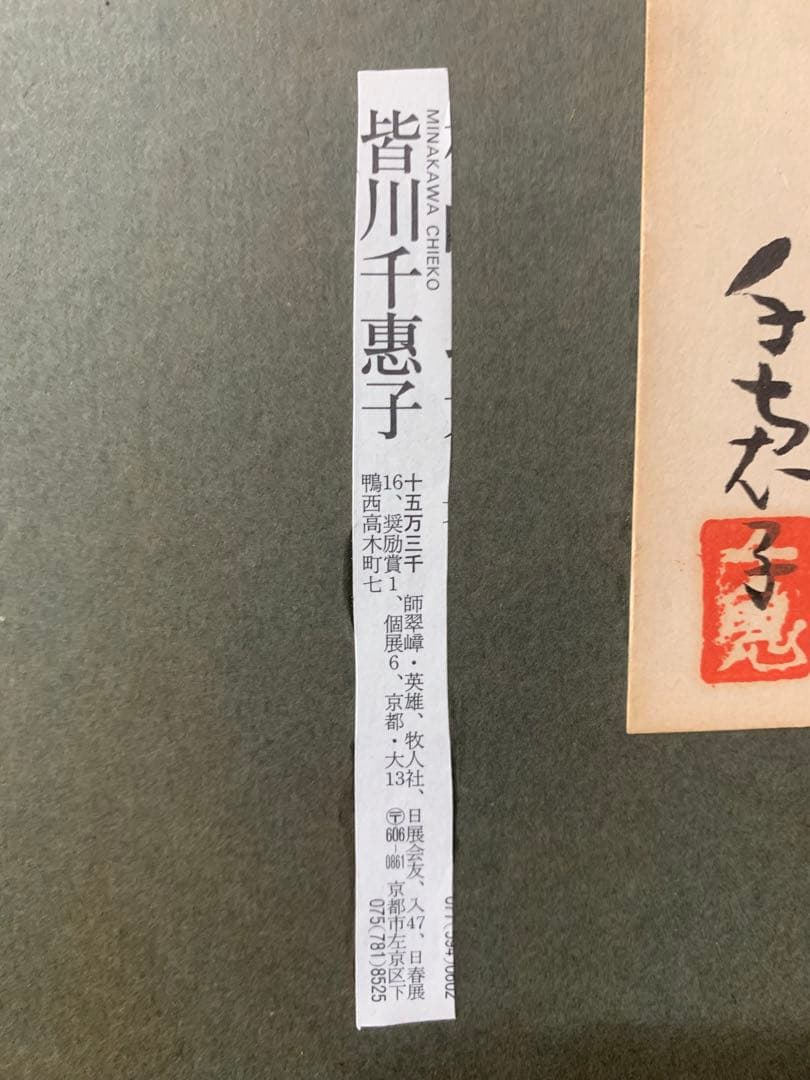 千恵子
MINAKAWA CHIEKO
皆川千惠子
十五万三千 師翠嶂・英雄、牧人社、日展会友、入47、日春展
16、奨励賞1、個展6、京都・大13 〒606-0861 京都市左京区下
鴨西高木町七
075(781)8525